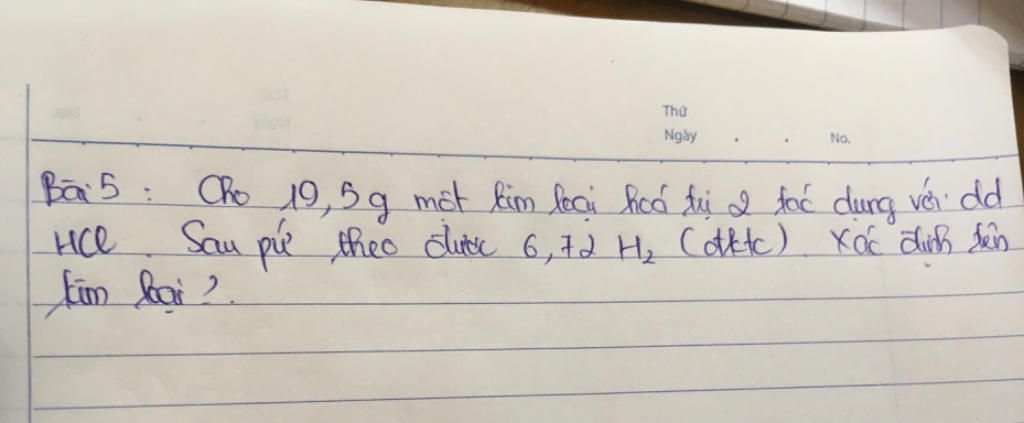 Thứ
Ngày . . No.
Bài 5 : Cho 19,5g một kim loại hoá trị 2 tác dụng với dd
HCl. Sau pứ theo được 6,72 H₂ (đktc). Xác định tên
kim loại ?.